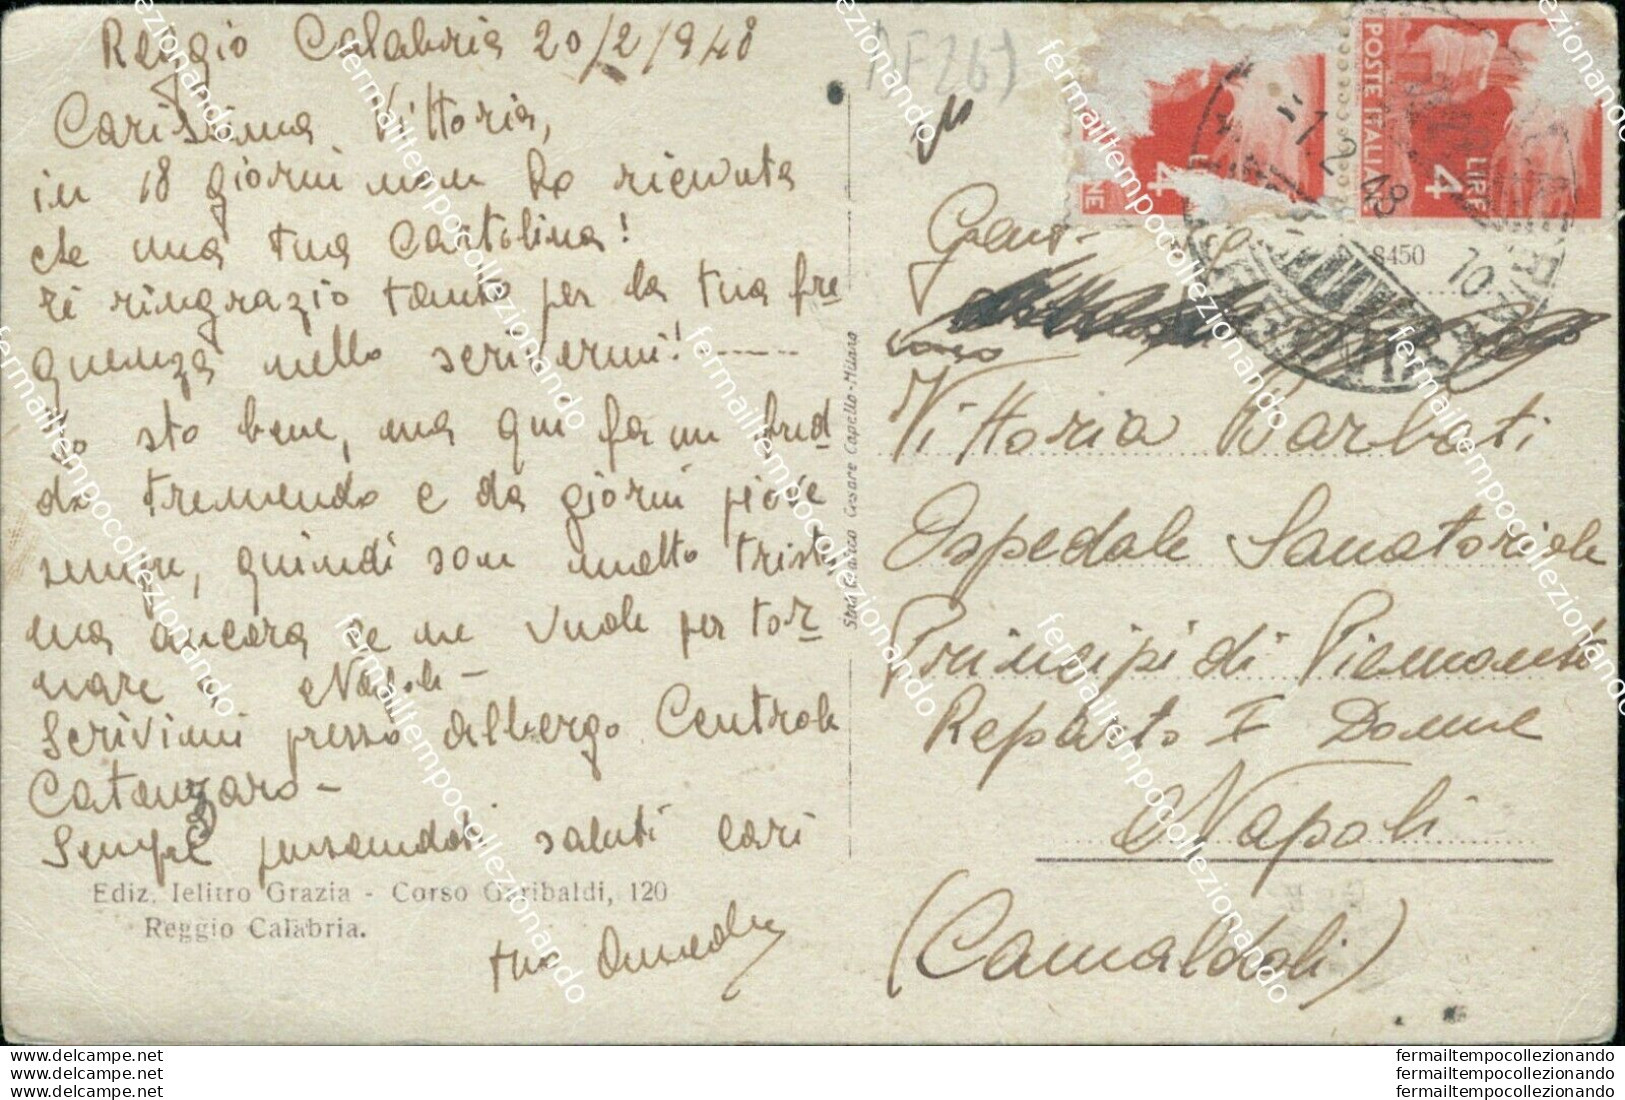 Reggio Calabria 20/2/948
Carissima Vittoria,
in 18 giorni non ho ricevuta
che una tua cartolina!
ti ringrazio tanto per la tua fre
quenza nello scrivermi! -----
Io sto bene, ma qui fa un fred
do tremendo e da giorni piove
sempre, quindi son molto triste
ma ancora ce ne vuole per tor
nare a Napoli -
Scrivimi presso Albergo Centrale
Catanzaro -
Sempre pensandoti saluti cari
tuo Amedeo
Ediz. Ielitro Grazia - Corso Garibaldi, 120
Reggio Calabria.
Stab. Grafico Cesare Capello - Milano
POSTE ITALIANE
LIRE 4
4
NE
8450
Gent.
Vittoria Barbati
Ospedale Sanatoriale
Principi di Piemonte
Reparto I Donne
Napoli
(Camaldoli)
fermailtempocollezionando
www.delcampe.net
www.delcampe.net
www.delcampe.net
fermailtempocollezionando
fermailtempocollezionando
fermailtempocollezionando